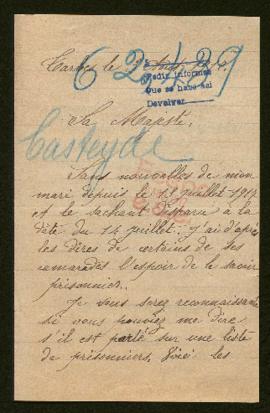 Tarbes le
62429
Pedir informes
Que se habe así
Devolver
Sa Majesté,
Casteyde
Sans nouvelles de mon
mari depuis le 11 juillet 1917
et le sachant disparu à la
date du 14 juillet. J'ai d'après
les dires de certains de ses
camarades l'espoir de le savoir
prisonnier.
Je vous serez reconnaissante
si vous pouviez me dire
s'il est porté sur une liste
de prisonniers. Voici les